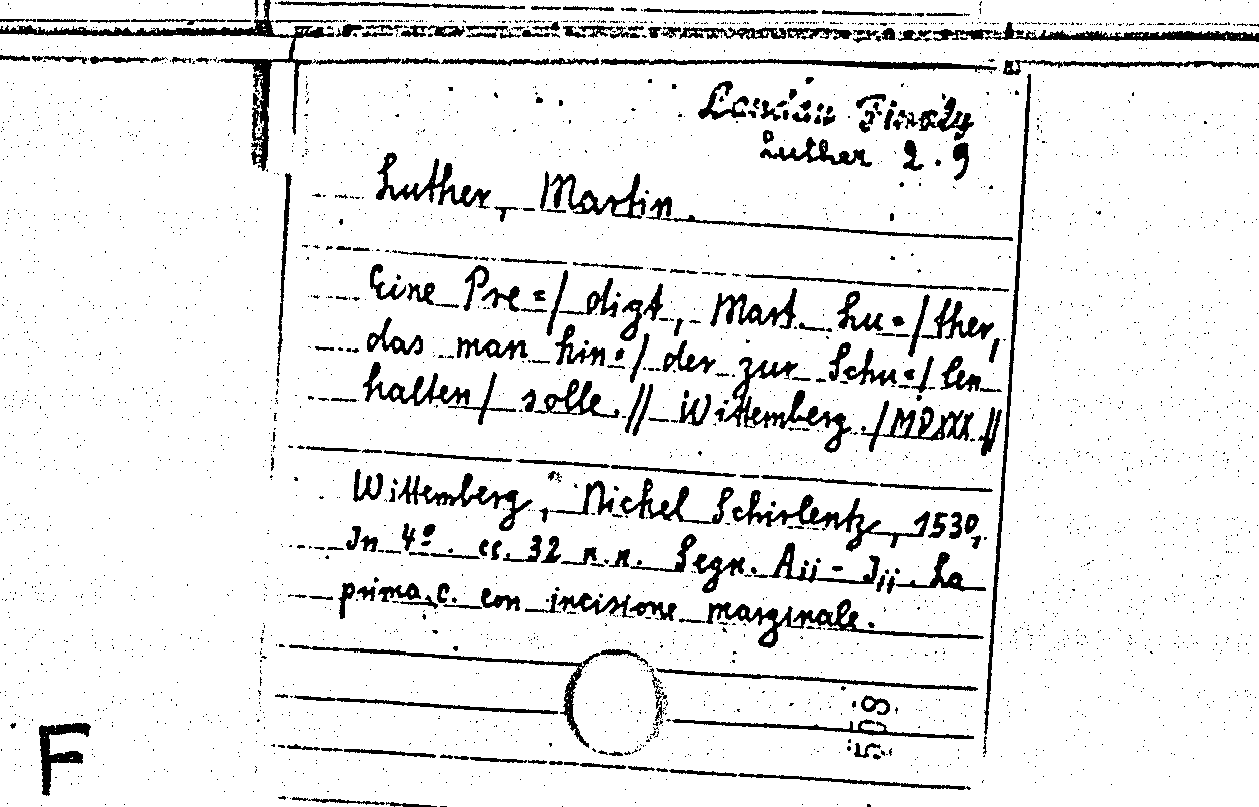 Landau Finaly
Luther 2.9
Luther, Martin.
Eine Pre=/ digt, Mart. Lu=/ther,
das man kin=/ der zur Schu=/len
halten/ solle.// Wittemberg./MDXXX//
Wittemberg, Nickel Schirlentz, 1530,
In 4º. cc. 32 n.n. Segn. Aii - Jii. La
prima c. con incisione marginale.
508
F